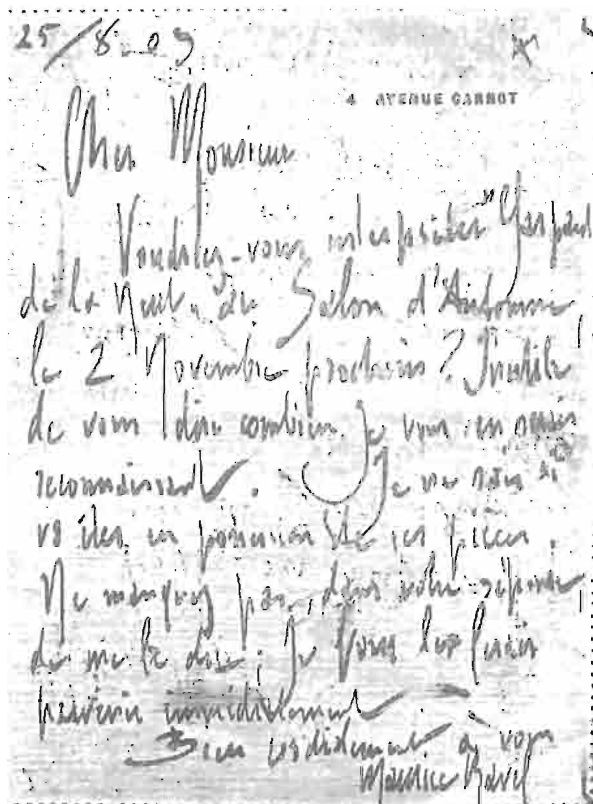 25/8-09
4 AVENUE CARNOT
Cher Monsieur
Voudriez-vous interpréter "Gaspard
de la Nuit" au Salon d'Automne
le 2 Novembre prochain ? Inutile
de vous dire combien je vous en serais
reconnaissant. Je ne sais si
vs êtes en possession de ces pièces.
Ne manquez pas, dans votre réponse
de me le dire ; je vous les ferais
parvenir immédiatement
Bien cordialement à vous
Maurice Ravel